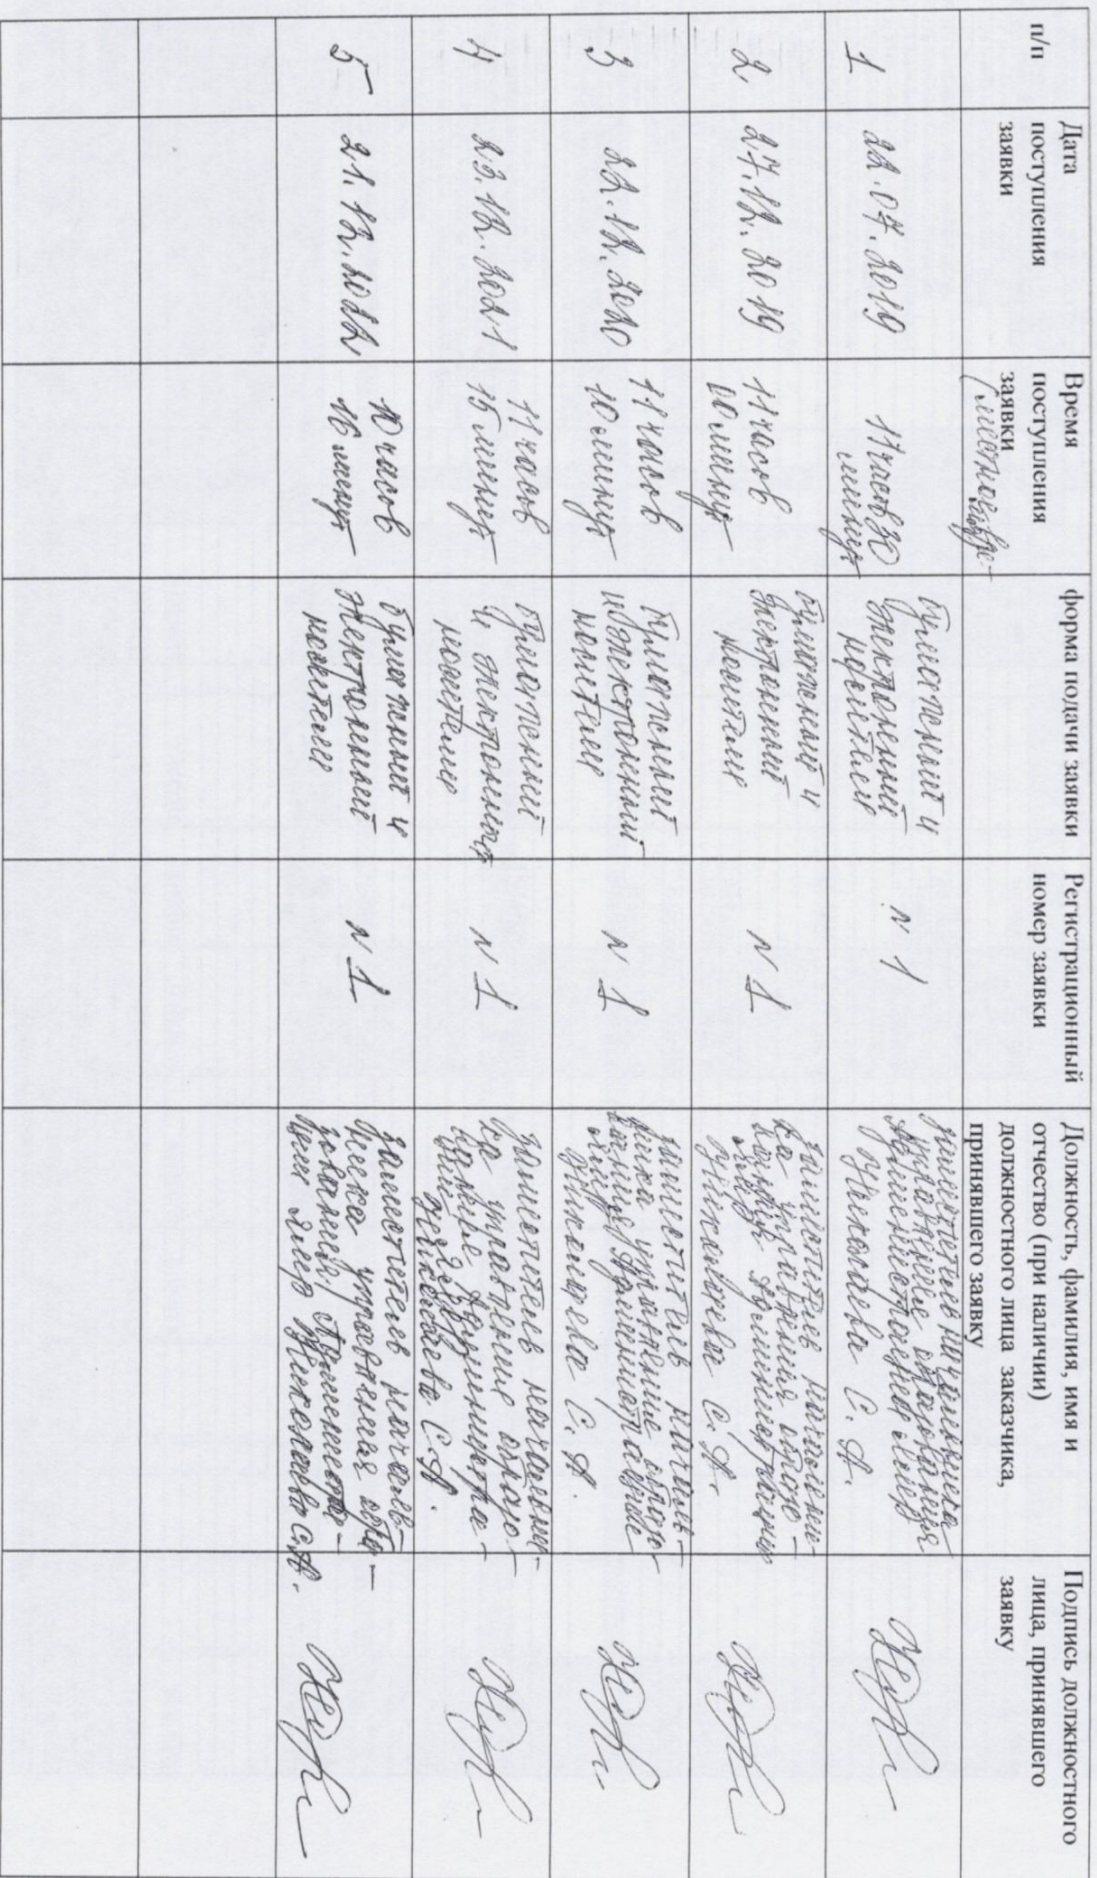 п/п
Дата
поступления
заявки
Время
поступления
заявки
(местное вре-
форма подачи заявки
Регистрационный
номер заявки
Должность, фамилия, имя и
отчество (при наличии)
должностного лица заказчика,
принявшего заявку
Подпись должностного
лица, принявшего
заявку
1
22.07.2019
11 часов 30
минут
бумажный и
электронный
носители
N 1
заместитель начальника
управления образования
Администрации
Николаева С.А.
2
27.12.2019
11 часов
00 минут
бумажный и
электронный
носители
N 1
заместитель начальни-
ка управления образо-
вания Администрации
Николаева С.А.
3
22.12.2020
11 часов
10 минут
бумажный
и электронный
носители
N 1
заместитель началь-
ника управления образо-
вания Администрации
Николаева С.А.
4
23.12.2021
11 часов
15 минут
бумажный
и электронный
носители
N 1
заместитель начальни-
ка управления образо-
вания Администра-
ции Николаева С.А.
5
21.12.2022
10 часов
16 минут
бумажный и
электронный
носители
N 1
заместитель началь-
ника управления обра-
зования Администра-
ции Николаева С.А.